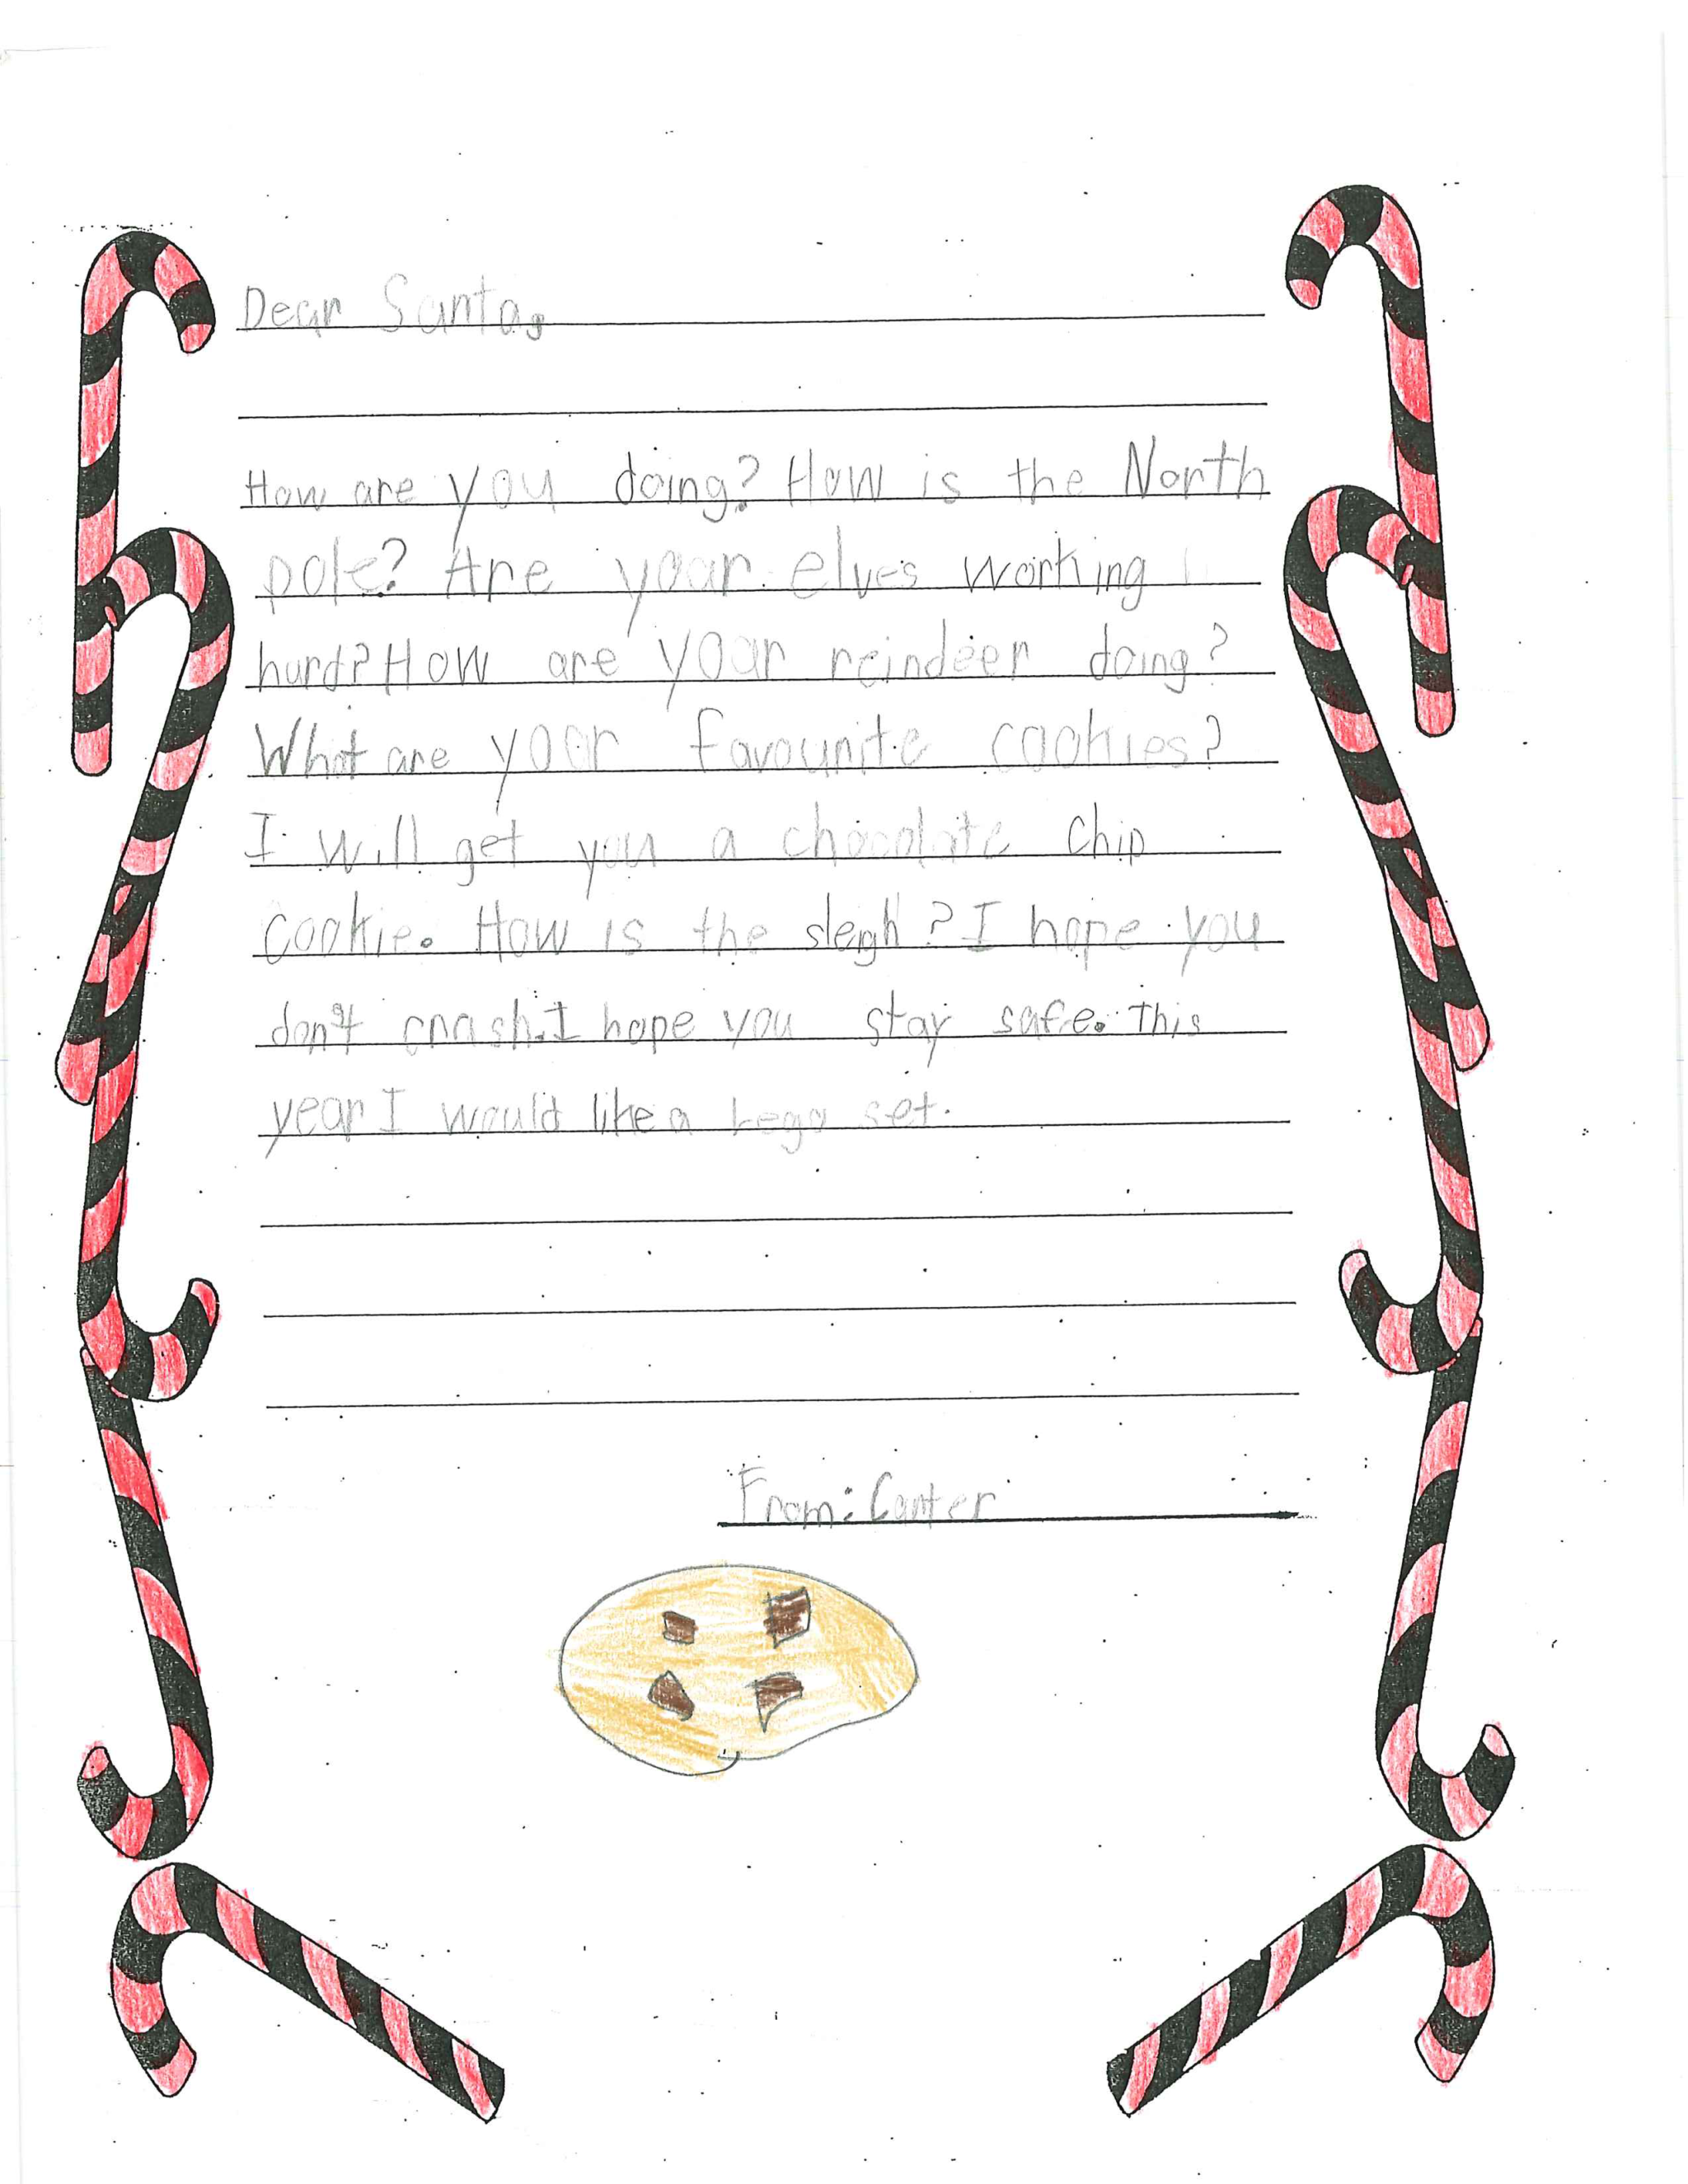 Dear Santa,
How are you doing? How is the North
pole? Are your elves working
hard? How are your reindeer doing?
What are your favourite cookies?
I will get you a chocolate chip
cookie. How is the sleigh? I hope you
don't crash. I hope you stay safe. This
year I would like a Lego set.
From: Carter